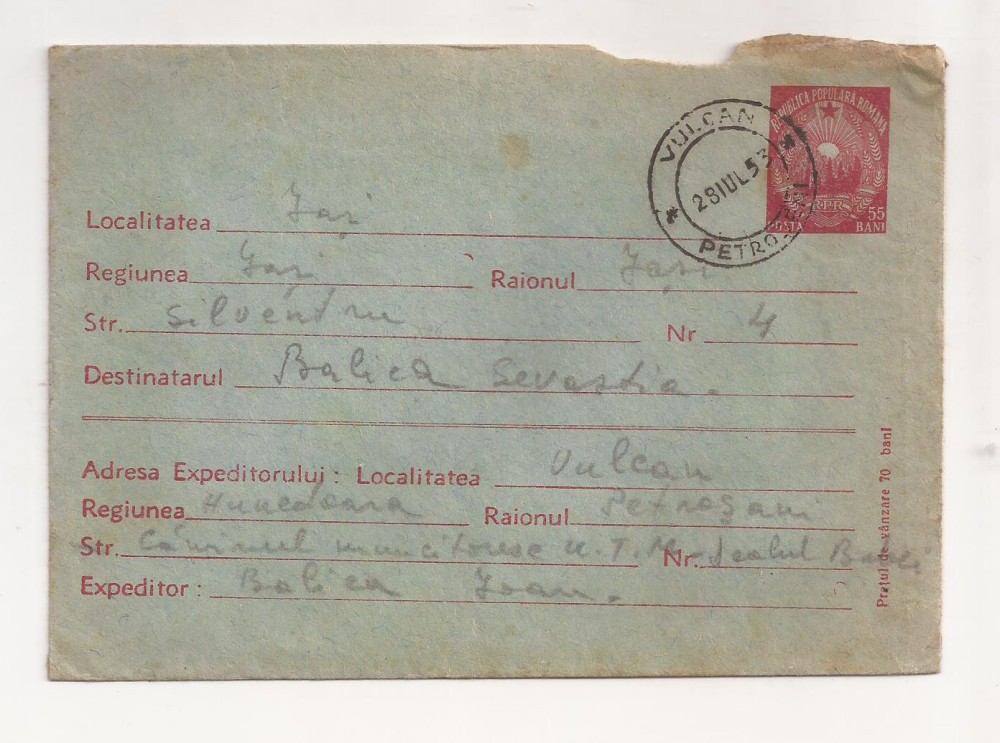 REPUBLICA POPULARĂ ROMÂNĂ
RPR
POSTA 55 BANI
VULCAN
28 IUL 53
PETROȘENI
Localitatea Iași
Regiunea Iași Raionul Iași
Str. Silvestru Nr 4
Destinatarul Balica Sevastia.
Adresa Expeditorului: Localitatea Vulcan
Regiunea Hunedoara Raionul Petroșani
Str. Căminul muncitoresc U.T.M. Nr. Dealul Babei
Expeditor: Balica Ioan.
Prețul de vânzare 70 bani